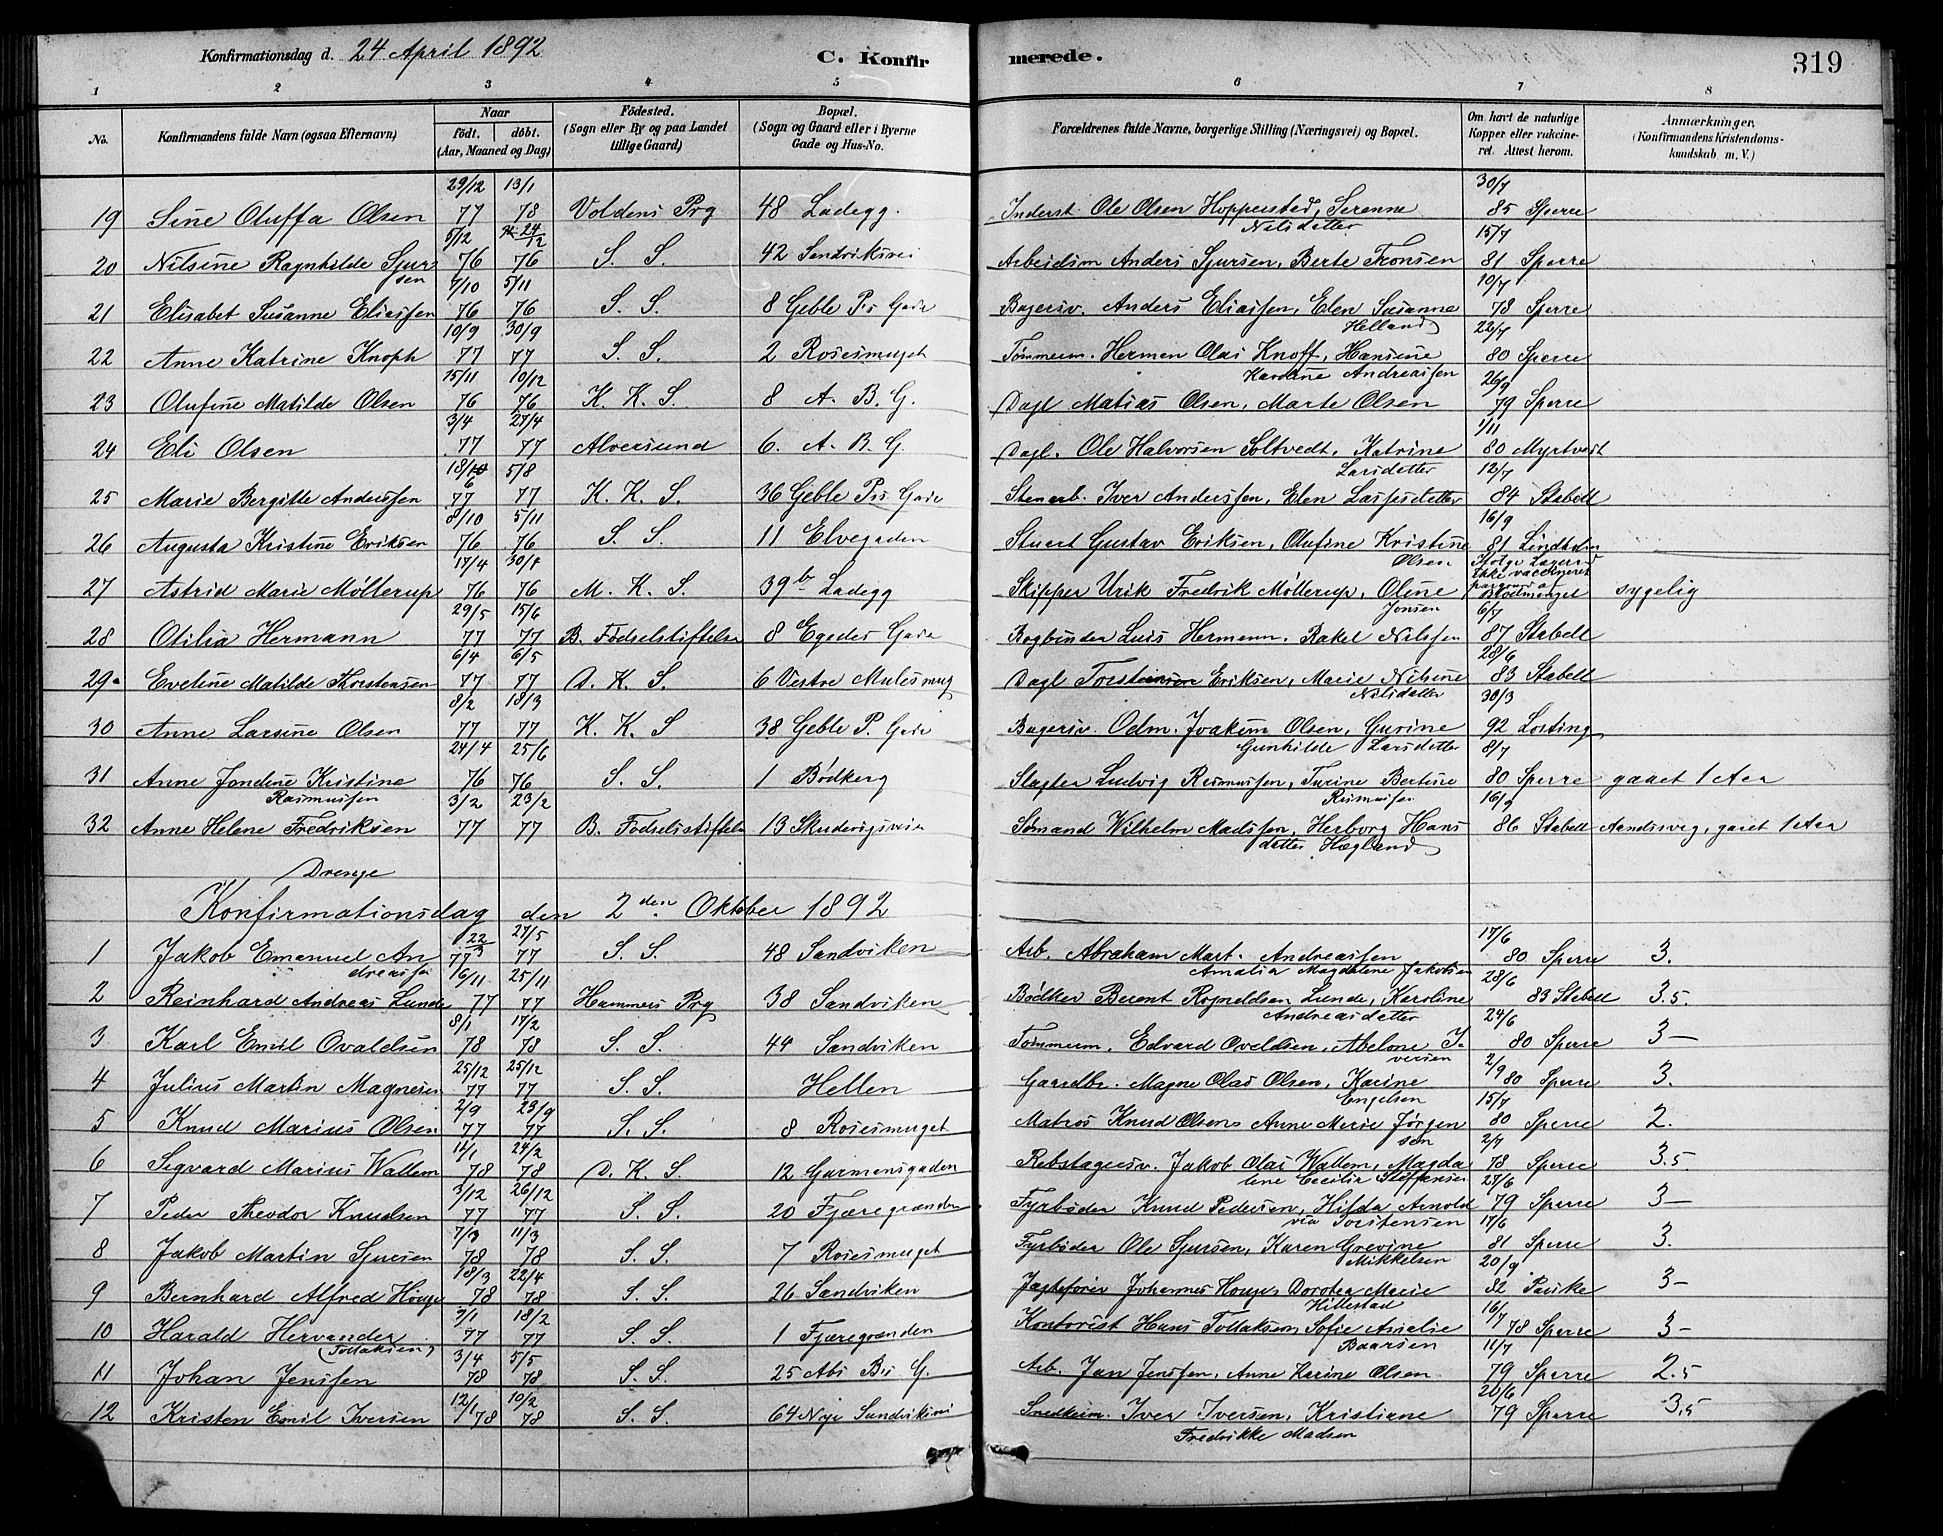 Konfirmationsdag d. 24 April 1892 C. Konfirmerede. 319
1 2 3 4 5 6 7 8
No. Konfirmandens fulde Navn (ogsaa Efternavn) Naar födt. döbt. (Aar, Maaned og Dag) Födested. (Sogn eller By og paa Landet tillige Gaard) Bopæl. (Sogn og Gaard eller i Byerne Gade og Hus-No. Forældrenes fulde Navne, borgerlige Stilling (Næringsvei) og Bopæl. Om havt de naturlige Kopper eller vakcineret. Attest herom. Anmærkninger, (Konfirmandens Kristendomskundskab m. V.)
29/12 13/1 30/7
19 Sine Oluffa Olsen 77 78 Voldens Prg 48 Ladegg. Inderst Ole Olsen Hopperstad, Serenne Nilsdatter 85 Sperre
5/12 24/12 15/7
20 Nilsine Ragnhilde Sjursen 76 76 S. S. 42 Sandviksvei Arbeidsm Anders Sjursen, Berte Tronsen 81 Sperre
7/10 5/11 10/7
21 Elisabet Susanne Eliassen 76 76 S. S. 8 Geble Ps Gade Bagersv. Anders Eliassen, Elen Susanne Helland 78 Sperre
10/9 30/9 22/7
22 Anne Katrine Knoph 77 77 S. S. 2 Rosesmuget Tømmerm. Herman Olai Knoff, Hansine Karoline Andreassen 80 Sperre
15/11 10/12 26/9
23 Olufine Matilde Olsen 76 76 K. K. S. 8 A. B. G. Dagl Matias Olsen, Marte Olsen 79 Sperre
3/4 27/4 1/11
24 Eli Olsen 77 77 Alversund 6. A. B. G. Dagl. Ole Halvorsen Soltvedt, Katrine Larsdatter 80 Myrtvedt
18/6 5/8 12/7
25 Marie Bergitte Anderssen 77 77 K. K. S. 36 Geble Ps Gade Stenarb. Iver Anderssen, Elen Lassesdatter 84 Stabell
8/10 5/11 16/9
26 Augusta Kristine Eriksen 76 76 S. S. 11 Elvegaden Stuert Gustav Eriksen, Olufine Kristine Olsen 81 Lindholm
17/4 30/4
27 Astrid Marie Möllerup 76 76 M. K. S. 39b Ladegg Skipper Urik Fredrik Møllerup, Oline Jonsen Ikke vaccineret Blodmangel sygelig
29/5 15/6 6/7
28 Otilia Hermann 77 77 B. Födselstiftelse 8 Egedes Gade Bogbinder Luis Hermann, Rakel Nilssen 87 Stabell
6/4 6/5 28/6
29 Eveline Matilde Thorstensen 77 77 D. K. S. 6 Vestre Mulesmug Dagl Torstensen Eriksen, Marie Nilsine Nilsdatter 83 Stabell
8/2 18/3 30/3
30 Anne Larsine Olsen 77 77 K. K. S 38 Geble P. Gade Bagersv. Odm. Joakim Olsen, Gurine Gunhilde Larsdatter 92 Losting
24/4 25/6 8/7
31 Anne Jondine Kristine Rasmussen 76 76 S. S. 1 Bødkerg Slagter Ludvig Rasmussen, Turine Bertine Rasmussen 80 Sperre gaaet 1 Aar
3/2 23/2 16/9
32 Anne Helene Fredriksen 77 77 B. Fødselsstiftelse 13 Skudevigsveien Sømand Wilhelm Madssen, Herborg Hansdatter Hægland 86 Stabell Aandssvag, gaaet 1 Aar
Drenge
Konfirmationsdag den 2den Oktober 1892
22/3 27/5 17/6
1 Jakob Emanuel Andreassen 77 77 S. S. 48 Sandviken Arb. Abraham Mart. Andreassen Amalia Magdalene Jakobsen 80 Sperre 3.
6/11 25/11 28/6
2 Reinhard Andreas Lunde 77 77 Hammers Prg 38 Sandviken Bødker Berent Rognaldsen Lunde, Karoline Andreasdatter 83 Stabell 3.5.
8/1 17/2 24/6
3 Karl Emil Ovaldsen 78 78 S. S. 44 Sandviken Tømmerm. Edvard Oveldsen, Abelone Iversen 80 Sperre 3-
25/12 25/12 2/9
4 Julius Martin Magnesen 77 77 S. S. Hellen Gaardbr. Magne Olas Olsen, Karine Engelsen 80 Sperre 3.
2/9 23/9 15/7
5 Knud Marius Olsen 77 77 S. S. 8 Rosesmuget Matros Knud Olsen, Anne Marie Jørgensen 80 Sperre 2.
14/1 24/2 2/7
6 Sigvard Marius Wallem 78 78 D. K. S. 12 Garmansgaden Rebslagersv. Jakob Olai Wallem, Magdalene Cecilia Steffensen 78 Sperre 3.5
3/12 26/12 27/6
7 Peder Theodor Knudsen 77 77 S. S. 20 Fjæregrænden Fyrbøder Knud Pedersen, Hilda Arnoldvia Torstensen 79 Sperre 3-
7/3 11/3 17/6
8 Jakob Martin Sjursen 78 78 S. S. 7 Rosesmuget Fyrbøder Ole Sjursen, Karen Grevine Mikkelsen 81 Sperre 3.
18/3 22/4 20/9
9 Bernhard Alfred Houge 78 78 S. S. 26 Sandviken Jagtefører Johannes Houge, Dorotea Marie Hillestad 82 Paiske 3-
3/1 18/2 16/7
10 Harald Hervander (Tollaksen) 77 77 S. S. 1 Fjæregrænden Kontorist Hans Tollaksen Sofie Amalie Baarsen 78 Sperre 3-
3/4 5/5 11/7
11 Johan Jenssen 78 78 S. S. 25 Abs Bs G. Arb. Jan Jenssen, Anne Karine Olsen 79 Sperre 2.5
12/1 10/2 20/6
12 Kristen Emil Iversen 78 78 S. S. 64 Nye Sandviksvei Snedkerm. Iver Iversen, Kristiane Fredrikke Madsen 79 Sperre 3.5